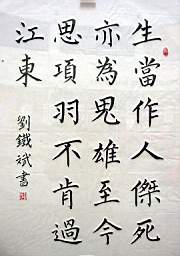 生當作人傑死
亦為鬼雄至今
思項羽不肯過
江東
劉鐵斌書